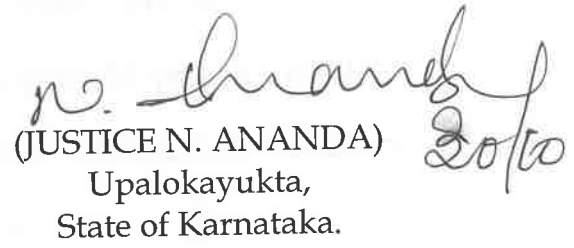 N. Ananda
(JUSTICE N. ANANDA) 20/10
Upalokayukta,
State of Karnataka.